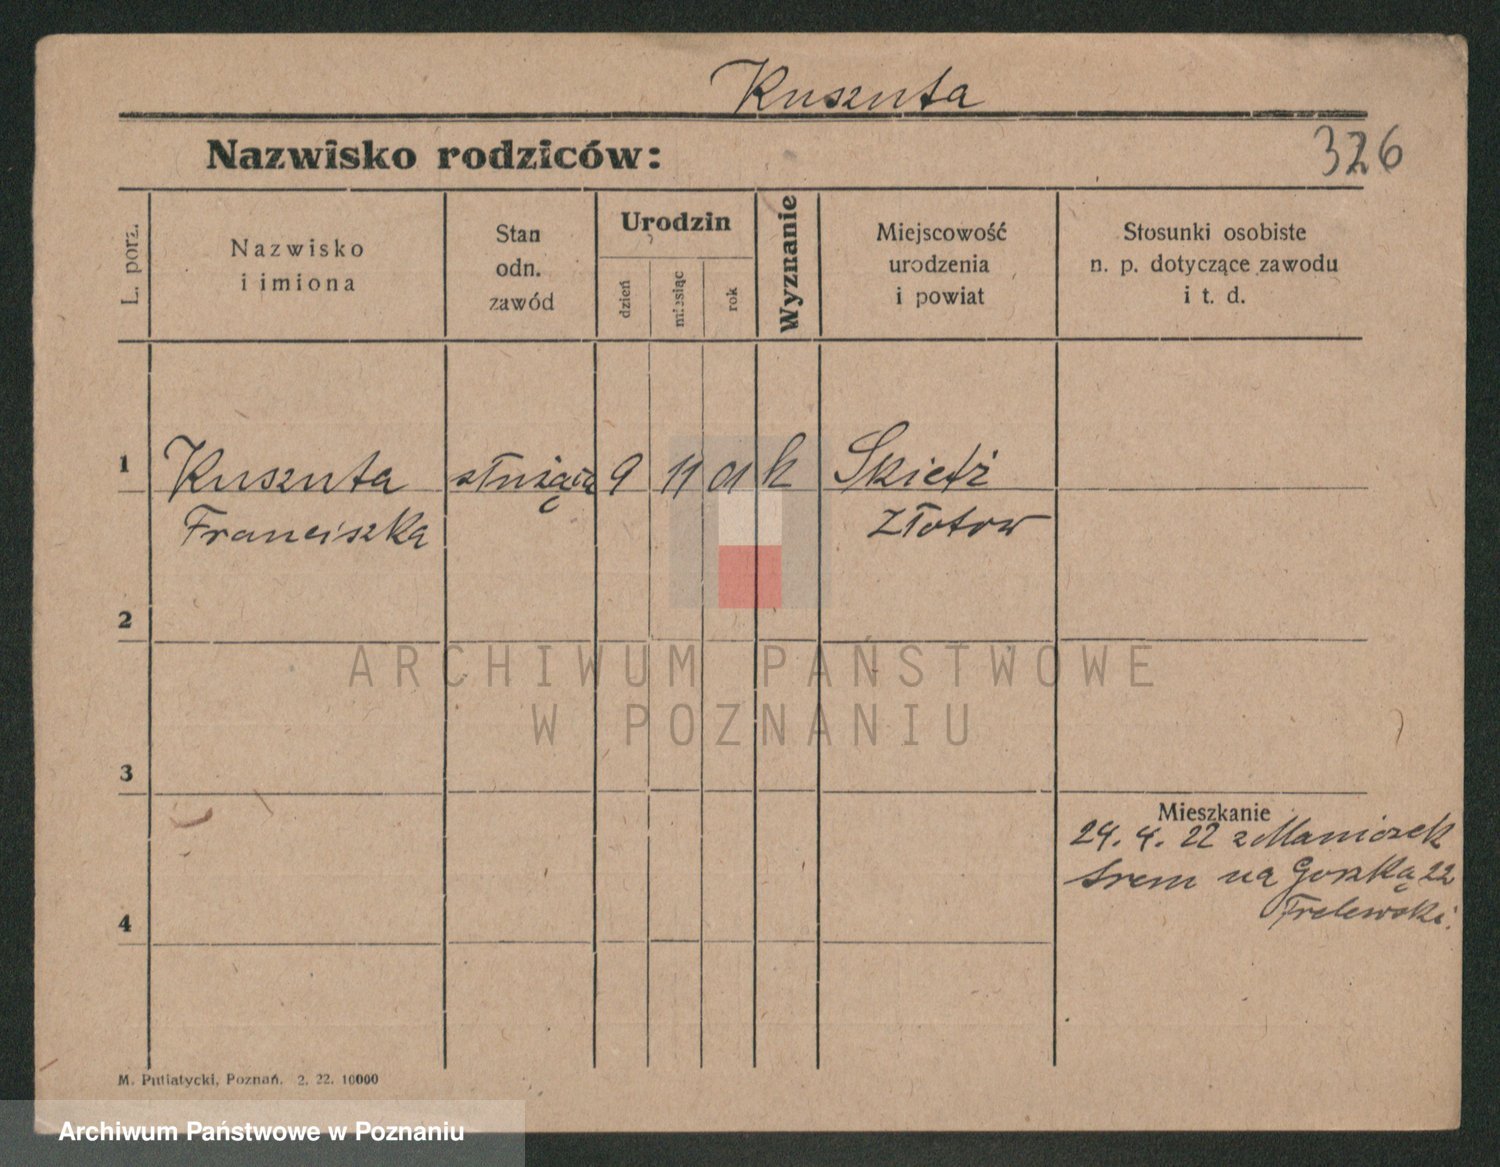 Kuszuta
Nazwisko rodziców:
326
L. porz.
Nazwisko
i imiona
Stan
odn.
zawód
Urodzin
dzień
miesiąc
rok
Wyznanie
Miejscowość
urodzenia
i powiat
Stosunki osobiste
n. p. dotyczące zawodu
i t. d.
1
Kuszuta służąca 9 11 01 k Skietź
Franciszka Złotow
2
ARCHIWUM PAŃSTWOWE
W POZNANIU
3
Mieszkanie
24. 4. 22 z Maniczek
Srem na Gorską 22
Frelewski.
4
M. Putiatycki, Poznań. 2. 22. 10000
Archiwum Państwowe w Poznaniu